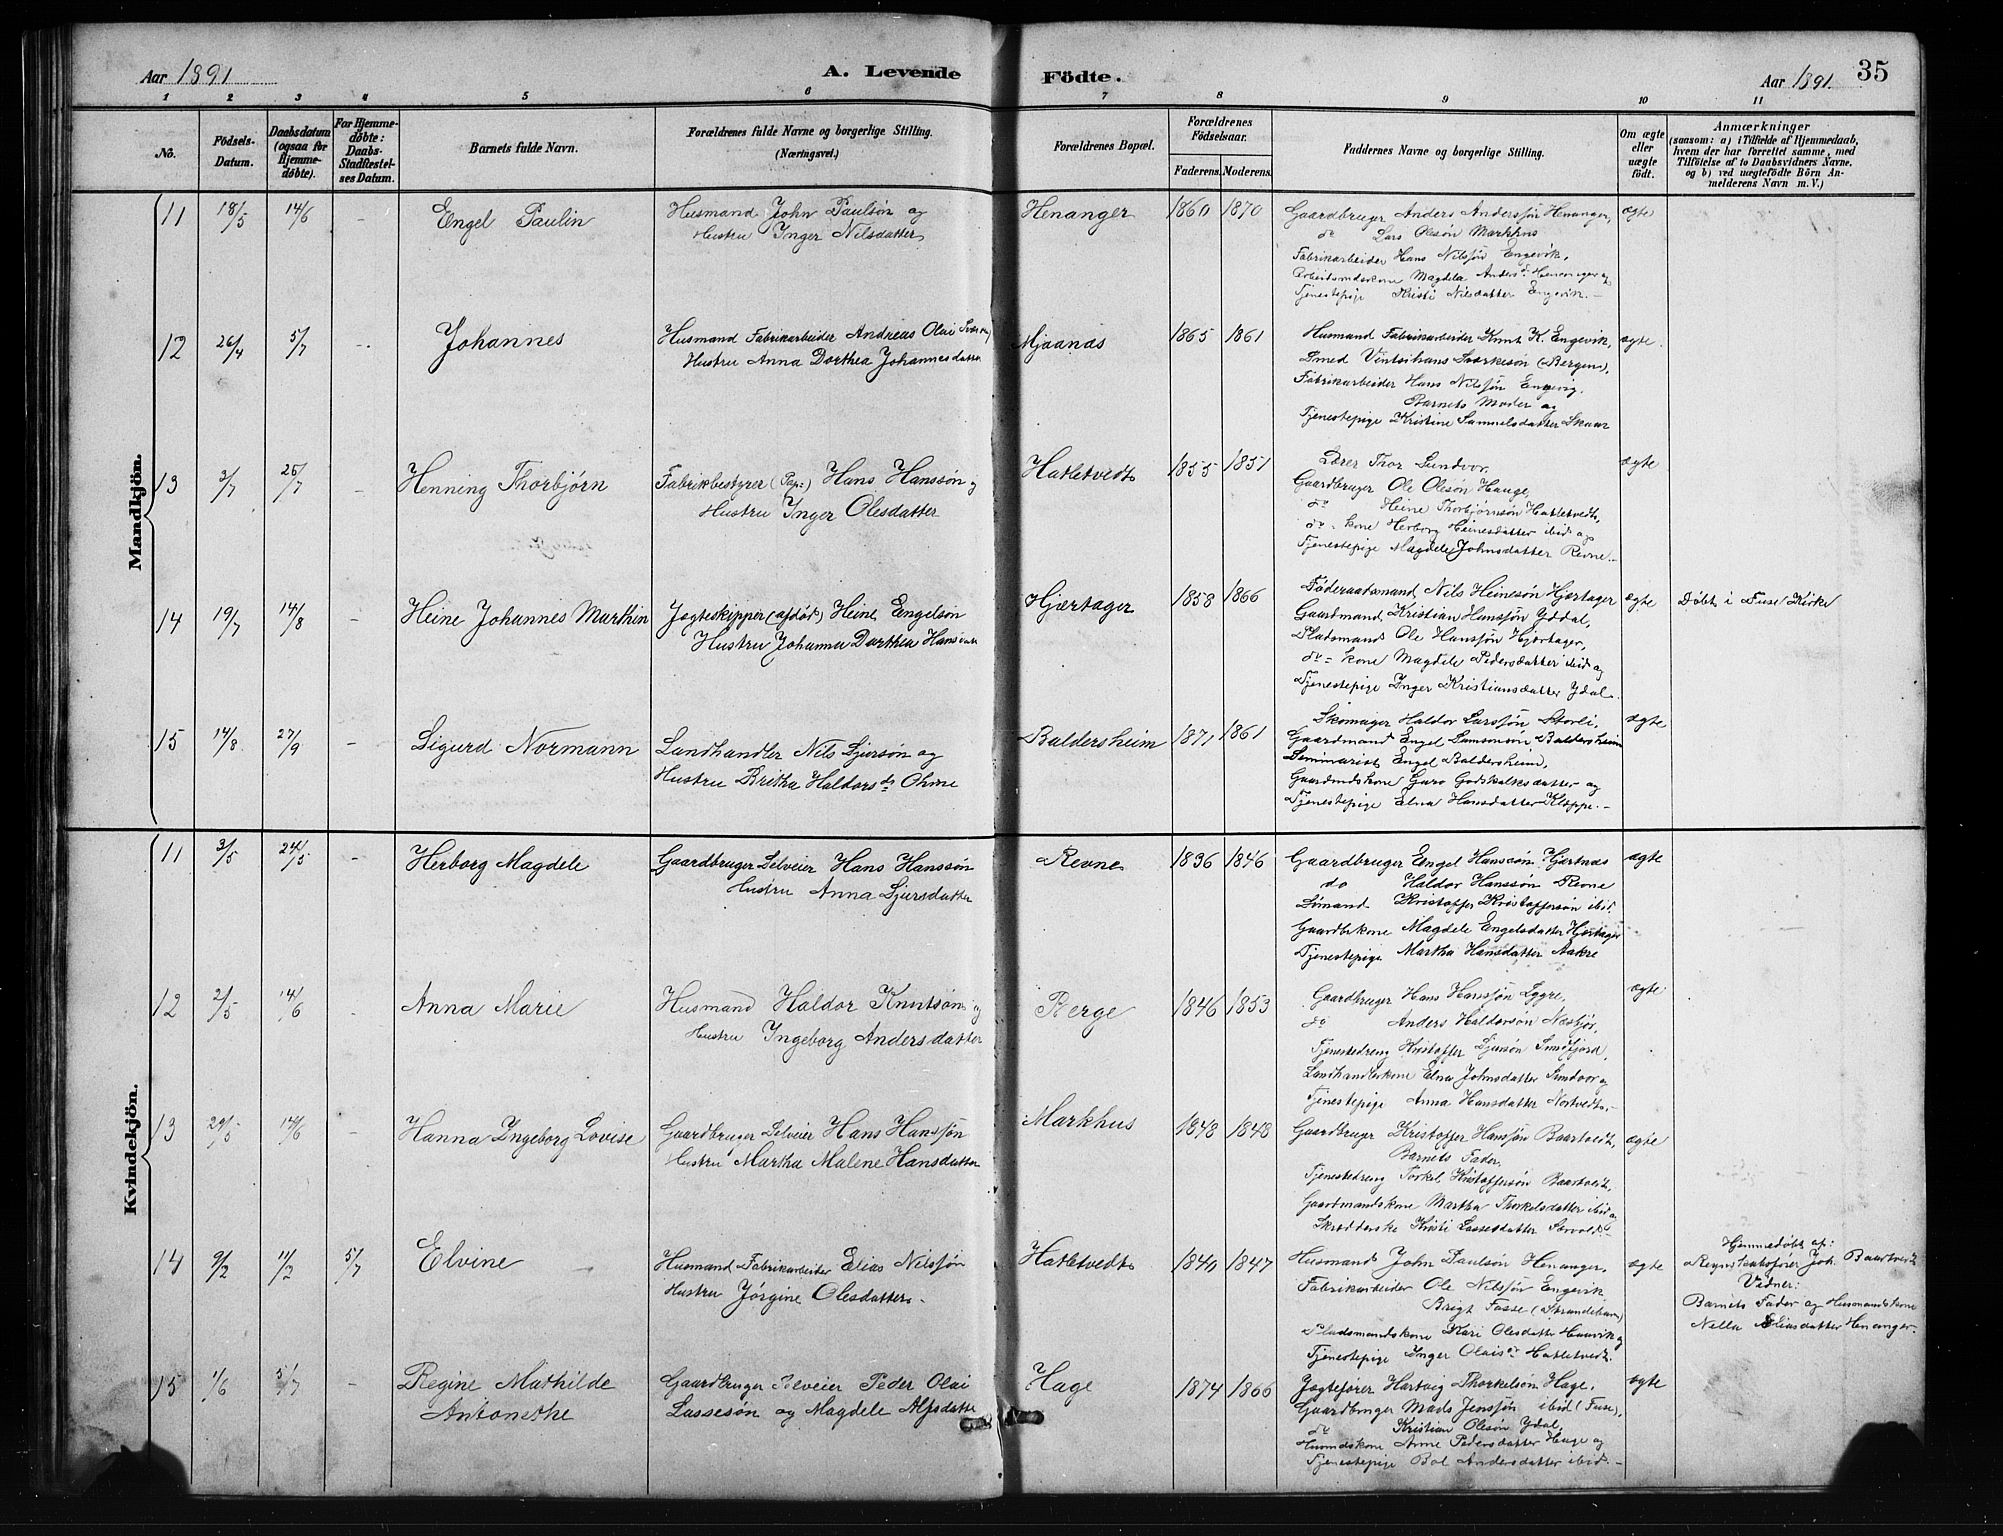 Aar 1891
A. Levende Födte.
Aar 1891. 35
1 2 3 4 5 6 7 8 9 10 11
No.
Födsels-Datum.
Daabsdatum (ogsaa for Hjemme-døbte).
For Hjemme-døbte: Daabs-Stadfæstel-ses Datum.
Barnets fulde Navn.
Forældrenes fulde Navne og borgerlige Stilling. (Næringsvei.)
Forældrenes Bopæl.
Forældrenes Födselsaar.
Faderens. Moderens.
Faddernes Navne og borgerlige Stilling.
Om ægte eller uægte födt.
Anmærkninger
(saasom: a) i Tilfælde af Hjemmedaab, hvem der har forrettet samme, med Tilföielse af to Daabsvidners Navne, og b) ved uægtefödte Börn An-melderens Navn m. V.)
Mandkjön.
11 18/5 14/6 - Engel Paulin
Husmand John Paulsön og
Hustru Inger Nilsdatter
Henanger 1860 1870
Gaardbruger Anders Andersön Henanger,
do Lars Olesön Markhus
Fabrikarbeider Hans Nilsön Engevik,
Arbeidsmdskone Magdela Andersd. Henanger og
Tjenestepige Kristi Nilsdatter Engevik.-
ægte
12 26/4 5/7 - Johannes
Husmand Fabrikarbeider Andreas Olai
Hustru Anna Dorthea Johannesdatter
Mjaanæs 1865 1861
Husmand Fabrikarbeider Knut K. Engevik,
Smed Sværkesön (Bergen),
Fabrikarbeider Hans Nilsön Engevig.
Barnets Moder og
Tjenestepige Kristine Samuelsdatter Skaar
ægte.
13 3/7 26/7 - Henning Thorbjørn
Fabrikbestyrer (Pap:) Hans Hanssön og
Hustru Inger Olesdatter
Hatletvedt 1855 1857
Lærer Thor Sundvor,
Gaardbruger Ole Olesön Hauge,
do Heine Thorbjörnsön Hatletvedt,
do - kone Herborg Heinesdatter ibid og
Tjenestepige Magdele Johnsdatter Revne.-
ægte
14 19/7 14/8 - Heine Johannes Marthin
Jagteskipper (afdød) Heine Engelsön
Hustru Johanna Dorthea Hansdatter
Hjærtager 1858 1866
Föderaadsmand Nils Heinesön Hjærtager
Gaardmand Kristian Hansön Yddal,
Pladsmand Ole Hansön Hjærtager,
do - kone Magdele Pedersdatter ibid og
Tjenestepige Inger Kristiansdatter Ydal.
ægte
Døbt i Fuse Kirke
15 14/8 27/9 - Sigurd Normann
Landhandler Nils Sjursön og
Hustru Britha Haldorsdr Ohme
Baldersheim 1871 1861
Skomager Haldor Larssön Storli,
Gaardmand Engel Samsonsön Baldersheim
Seminarist Engel Baldersheim,
Gaardmdskone Guro Godskalksdatter og
Tjenestepige Elna Hansdatter Kleppe.-
ægte
Kvindekjön.
11 3/5 24/5 - Herborg Magdele
Gaardbruger Selveier Hans Hanssön
Hustru Anna Sjursdatter
Revne 1836 1846
Gaardbruger Engel Hanssön Hjertnæs
do Haldor Hanssön Revne
Sömand Kristoffer Kristoffersön ibid.
Gaardbrkone Magdele Engelsdatter Hjærtager
Tjenestepige Martha Hansdatter Aakre
ægte
12 2/5 14/6 - Anna Marie
Husmand Haldor Knutsön og
Hustru Ingeborg Andersdatter
Berge 1846 1853
Gaardbruger Hans Hansön Eggre,
do Anders Haldorsön
Tjenestedreng Kristoffer Sjursön
Landhandlerkone Elna Johnsdatter Sundvor og
Tjenestepige Anna Hansdatter Nortvedt.-
ægte
13 29/5 14/6 Hanna Ingeborg Lovise
Gaardbruger Selveier Hans Hansön
Hustru Martha Malene Hansdatter
Markhus 1848 1848
Gaardbruger Kristoffer Hansön Baartvedt,
Barnets Fader,
Tjenestedreng Torkel Kristoffersön Baartvedt,
Gaardmandskone Martha Thorkelsdatter ibid og
Skrædderske Kristi Lassesdatter
ægte
14 9/2 14/2 5/7 Elvine
Husmand Fabrikarbeider Elias Nilsön
Hustru Jørgine Olesdatter.
Hatletvedt 1840 1847
Husmand John Paulsön Henanger,
Fabrikarbeider Ole Nilsön Engevik
Brigt Fosse (Strandebarm)
Pladsmandskone Kari Olesdatter Haavik og
Tjenestepige Inger Olaisdr Hatletvedt.
ægte
Hjemmedøbt af:
Joh. Baartvedt
Vidner:
Barnets Fader og Husmandskone
Nella Eliasdatter Henanger.
15 1/6 5/7 - Regine Mathilde
Antonethe
Gaardbruger Selveier Peder Olai
Lassesön og Magdele Alfsdatter
Hage 1874 1866
Jagtefører Hartvig Thorkelsön Hage,
Gaardbruger Mads Jensön ibid (Fuse),
do Kristian Olesön Ydal,
Husmdskone Anne Pedersdatter Hage og
Tjenestepige Bol Andersdatter ibid.-
ægte